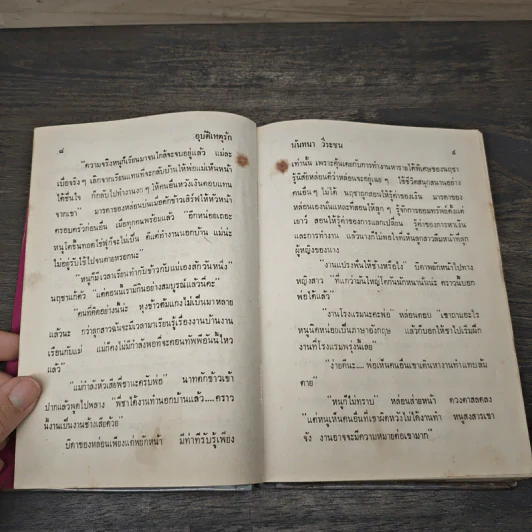 ๘ อุบัติเหตุรัก
"ความจริงหนูก็เรียนมาจนใกล้จะจบอยู่แล้ว แม่ละ
เบื่อจริง ๆ เลิกจากเรียนแทนที่จะกลับบ้านให้พ่อแม่เห็นหน้า
ได้ชื่นใจ ก็กลับไปทำงานงก ๆ ให้คนอื่นหวังเงินตอบแทน
จากเขา มารดาของหล่อนบ่นเมื่อตักข้าวเสิร์ฟให้หัวหน้า
ครอบครัวก่อนอื่น เมื่อทุกคนพร้อมแล้ว "อีกหน่อยเถอะ
หนูใดขึ้นทอดไข่ฟูก็จะไม่เป็น ดีแต่ทำงานนอกบ้าน แม่นะ
ไม่อยู่รับใช้ไปจนตายหรอกนะ
"หนูก็มีเวลาเรียนทำกับข้าวกับแม่เองสักวันหนึ่ง"
นฤชาแก้ตัว "แต่ตอนนี้เรามีกินอย่างสมบูรณ์แล้วนี่คะ"
"คนที่คิดอย่างงั้นน่ะ หุงข้าวต้มแกงไม่เป็นมาหลาย
แล้วนะ กว่าลูกสาวฉันจะมีเวลามาเรียนรู้เรื่องงานบ้านงาน
เรียนกับแม่ แม่ก็คงไม่มีกำลังพอที่จะคอนทัพพีอันนี้ไหว
แล้ว"
"แม่กำลังหัวเสียพี่ชาแะครับพ่อ" นาทตักข้าวเข้า
ปากแล้วพูดไปพลาง "พี่ชาได้งานทำนอกบ้านแล้ว....คราว
นี้งานเป็นงานช้างเสียด้วย"
บิดาของหล่อนเพียงแต่พยักหน้า มีท่าทีรับรู้เพียง
นันทนา วีระชน ๙
เท่านั้น เพราะคุ้นเคยกับการทำงานหารายได้พิเศษของนฤชา
รู้นิสัยหล่อนดีว่าหล่อนจะอยู่เฉย ๆ ใช้ชีวิตสนุกสนานอย่าง
คนอื่น ๆ ไม่ได้ นฤชาถูกสอนให้รู้ค่าของเงิน มารดาของ
หล่อนเองนั่นแหละที่สอนให้ลูก ๆ รู้จักการออมทรัพย์ตั้งแต่
เยาว์ สอนให้รู้ค่าของการแลกเปลี่ยน รู้ค่าของการหาเงิน
และการทำงาน แล้วนางก็ไม่พอใจที่เห็นลูกสาวลืมหน้าที่ลูก
ผู้หญิงของนาง
"งานแปรงฟันให้ช้างหรือไง" บิดาพยักหน้าไปทาง
หญิงสาว "ที่แกว่ามันใหญ่โตกันนักหนาน่ะน่ะ คราวนี้บอก
พ่อได้แล้ว"
"งานโรงแรมนะคะพ่อ" หล่อนตอบ "เขาถามอะไร
หนูนิดหน่อยเป็นภาษาอังกฤษ แล้วก็บอกให้เขาไปเริ่มฝึก
งานที่โรงแรมพรุ่งนี้เลย"
"ง่ายดีนะ.... พ่อเห็นคนอื่นเขาเดินหางานทำแทบล้ม
ตาย"
"หนูก็ไม่ทราบ" หล่อนส่ายหน้า ดวงตาสลดลง
"แต่หนูเห็นคนอื่นที่เขาผิดหวังไม่ได้งานทำ หนูสงสารเขา
จัง งานอาจจะมีความหมายต่อเขามาก"